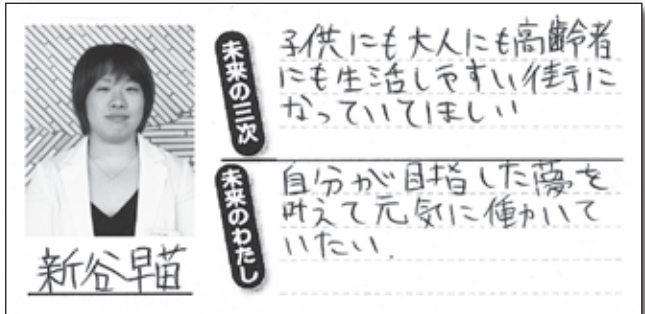 未来の三次
子供にも大人にも高齢者
にも生活しやすい街に
なっていてほしい
未来のわたし
自分が目指した夢を
叶えて元気に働いて
いたい.
新谷早苗